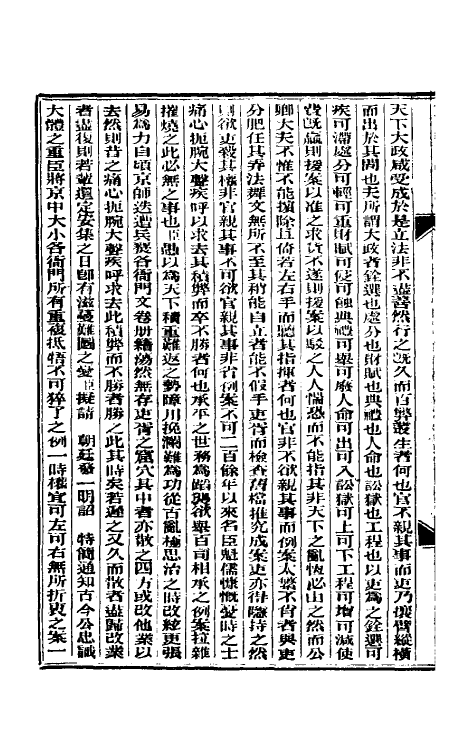 天下大政咸受成於是立法非不盡善然行之既久而百弊叢生者何也官不親其事而吏乃攘臂縱橫
而出於其間也夫所謂大政者銓選也處分也財賦也典禮也人命也訟獄也工程也以吏為之銓選可
疾可滯處分可輕可重財賦可侵可蝕典禮可舉可廢人命可出可入訟獄可上可下工程可增可減使
費既贏則援案以准之求貨不遂則援案以駁之人人惴恐而不能指其非天下之亂恆必由之然而公
卿大夫不惟不能擯除且倚若左右手而聽其指揮者何也官非不欲親其事而例案太繁不肖者與吏
分肥任其弄法舞文無所不至其稍能自立者能不假手吏胥而檢查舊檔推究成案吏亦得隱持之然
則欲吏殺其權非官親其事不可欲官親其事非省例案不可二百餘年以來名臣魁儒慷慨憂時之士
痛心扼腕大聲疾呼以求去其積弊而卒不勝者何也承平之世務為
欲舉百司相承之例案拉雜
摧燒之此必無之事也臣愚以為天下積重難返之勢障川挽瀾難為功從古亂極思治之時改絃更張
易為力自頃京師迭遭兵燹各衙門文卷册籍蕩然無存吏胥之窟穴其中者亦散之四方或改他業以
去然則昔之痛心扼腕大聲疾呼求去此積弊而不勝者勝之此其時矣若遲之又久而散者盡歸改業
者盡復則若輩還定安集之日即有滋蔓難圖之憂臣擬請　朝廷發一明詔　特簡通知古今公忠識
大體之重臣將京中大小各衙門所有重複抵牾不可猝了之例一時權宜可左可右無所折衷之案一